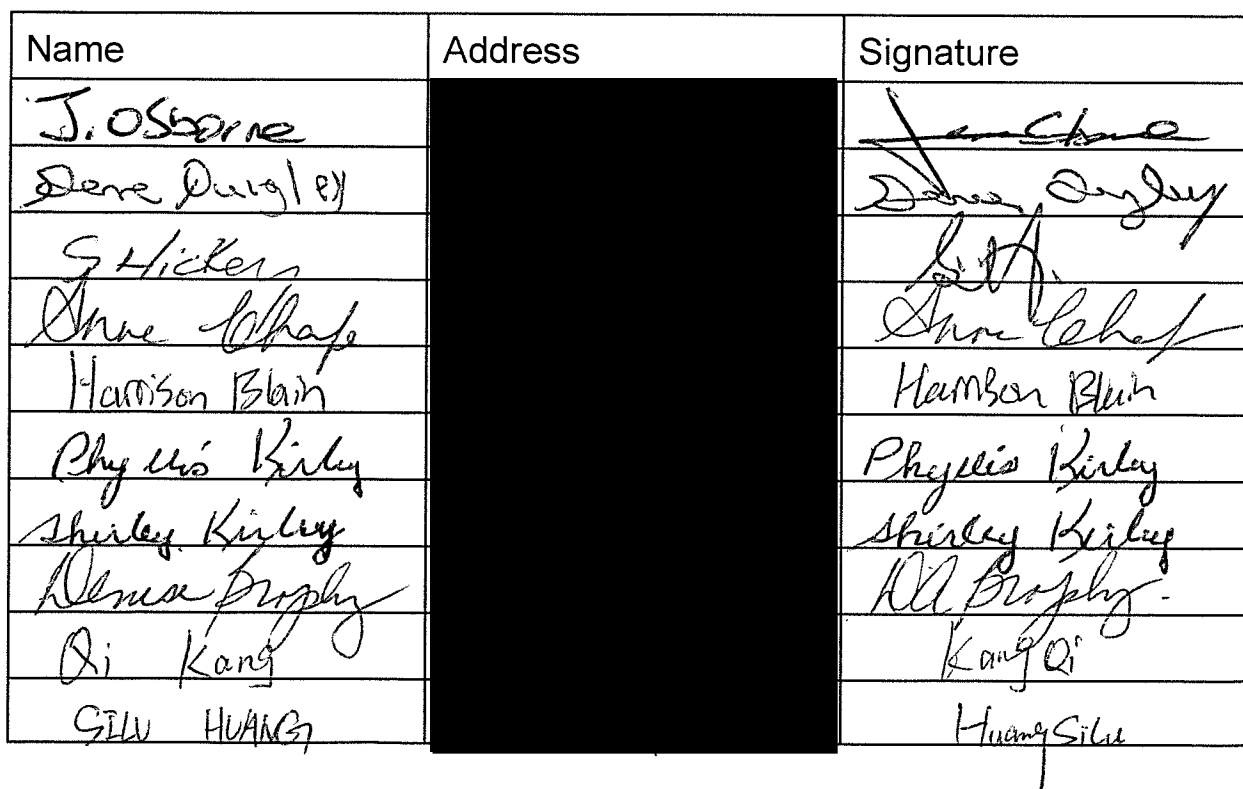 Name Address Signature
J. Osborne
Quigley
S Hickern S.H.
Anne Anne
Harrison Blain Harrison Blain
Phyllis Kirley Phyllis Kirley
Shirley Kirley Shirley Kirley
Denise Brophy DA Brophy
Qi Kang Kang Qi
SILU HUANG Huang Silu